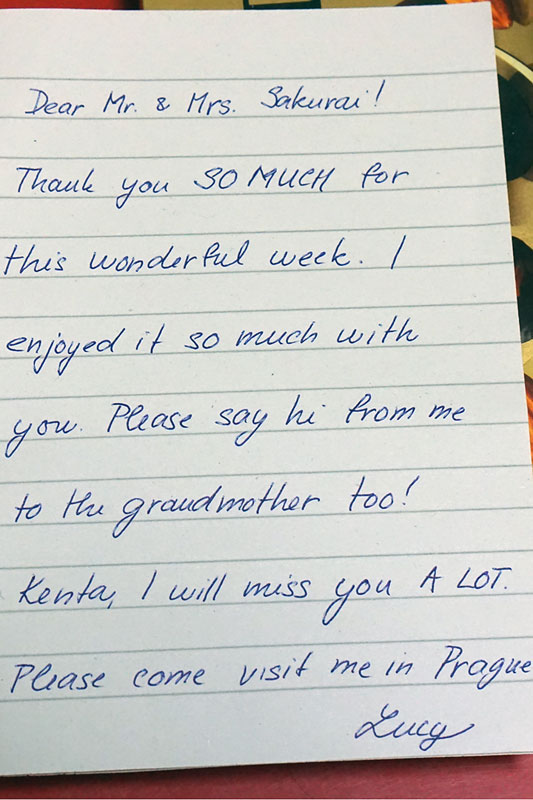 Dear Mr. & Mrs. Sakurai!
Thank you SO MUCH for
this wonderful week. I
enjoyed it so much with
you. Please say hi from me
to the grandmother too!
Kenta, I will miss you A LOT.
Please come visit me in Prague
Lucy